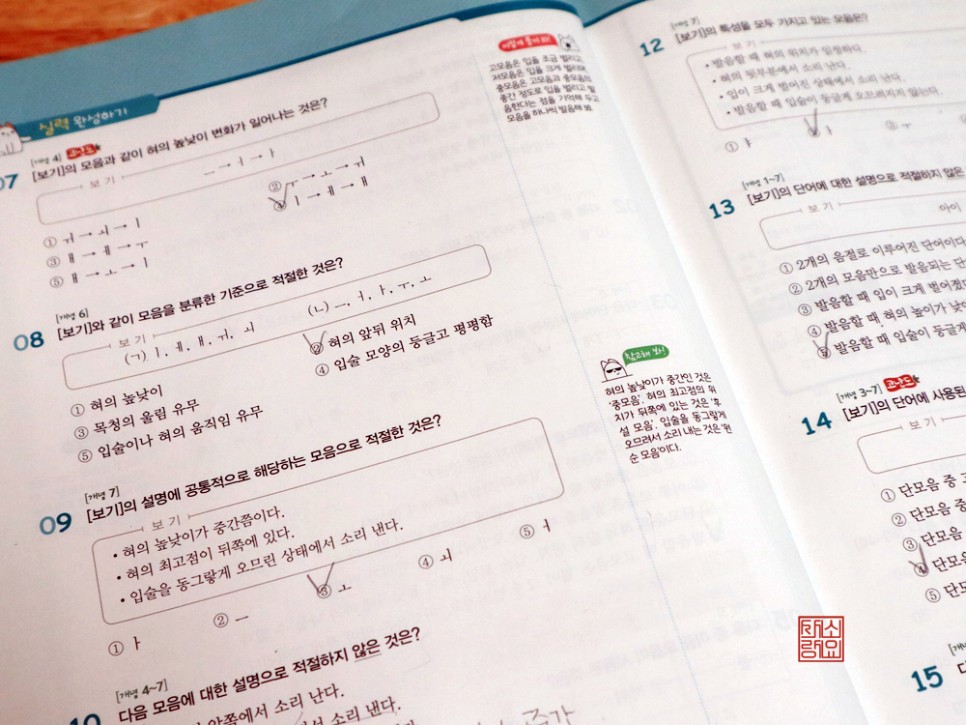 실력 완성하기
[개념 4] 고난도
07
[보기]의 모음과 같이 혀의 높낮이 변화가 일어나는 것은?
보기
ㅡ → ㅓ → ㅏ
① ㅟ → ㅚ → ㅣ
② ㅜ → ㅗ → ㅟ
③ ㅐ → ㅔ → ㅜ
④ ㅣ → ㅔ → ㅐ
⑤ ㅐ → ㅗ → ㅣ
[개념 6]
08
[보기]와 같이 모음을 분류한 기준으로 적절한 것은?
보기
(ㄱ) ㅣ, ㅔ, ㅐ, ㅟ, ㅚ
(ㄴ) ㅡ, ㅓ, ㅏ, ㅜ, ㅗ
① 혀의 높낮이
② 혀의 앞뒤 위치
③ 목청의 울림 유무
④ 입술 모양의 둥글고 평평함
⑤ 입술이나 혀의 움직임 유무
[개념 7]
09
[보기]의 설명에 공통적으로 해당하는 모음으로 적절한 것은?
보기
• 혀의 높낮이가 중간쯤이다.
• 혀의 최고점이 뒤쪽에 있다.
• 입술을 동그랗게 오므린 상태에서 소리 낸다.
① ㅏ
② ㅡ
③ ㅗ
④ ㅚ
⑤ ㅓ
[개념 4~7]
10
다음 모음에 대한 설명으로 적절하지 않은 것은?
안쪽에서 소리 난다.
에서 소리 난다.
고모음은 입을 조금 벌리고,
저모음은 입을 크게 벌리며,
중모음은 고모음과 저모음의
중간 정도로 입을 벌리고 발
음한다는 점을 기억해 두고
모음을 하나씩 발음해 봐.
참고해 봐!
혀의 높낮이가 중간인 것은
'중모음', 혀의 최고점의 위
치가 뒤쪽에 있는 것은 '후
설 모음', 입술을 동그랗게
오므려서 소리 내는 것은 '원
순 모음'이다.
[개념 7]
12
[보기]의 특성을 모두 가지고 있는 모음은?
보기
• 발음할 때 혀의 위치가 일정하다.
• 혀의 뒷부분에서 소리 난다.
• 입이 크게 벌어진 상태에서 소리 난다.
• 발음할 때 입술이 둥글게 오므려지지 않는다.
① ㅏ
③ ㅜ
[개념 1~7]
13
[보기]의 단어에 대한 설명으로 적절하지 않은
보기
아이
① 2개의 음절로 이루어진 단어이다
② 2개의 모음만으로 발음되는 단
③ 발음할 때 입이 크게 벌어졌다
④ 발음할 때 혀의 높이가 낮아
⑤ 발음할 때 입술이 둥글게
[개념 3~7] 고난도
14
[보기]의 단어에 사용된
보기
① 단모음 중
② 단모음 중
③ 단모음
④ 단모음
⑤ 단모
15
소요
사랑